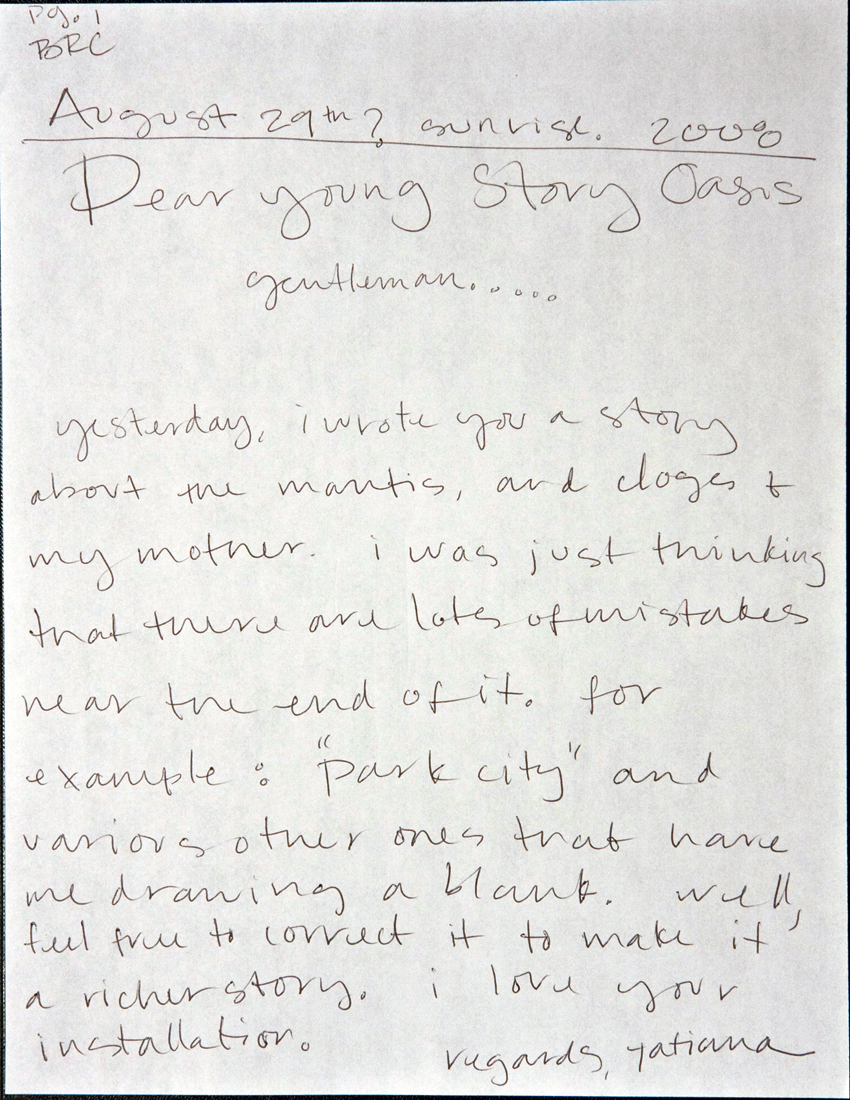 pg. 1
BRC
August 29th? sunrise. 2008
Dear young Story Oasis
gentleman.....
yesterday, i wrote you a story
about the mantis, and cloges &
my mother. i was just thinking
that there are lots of mistakes
near the end of it. for
example: "park city" and
various other ones that have
me drawing a blank. well,
feel free to correct it to make it
a richer story. i love your
installation.
regards, tatiana